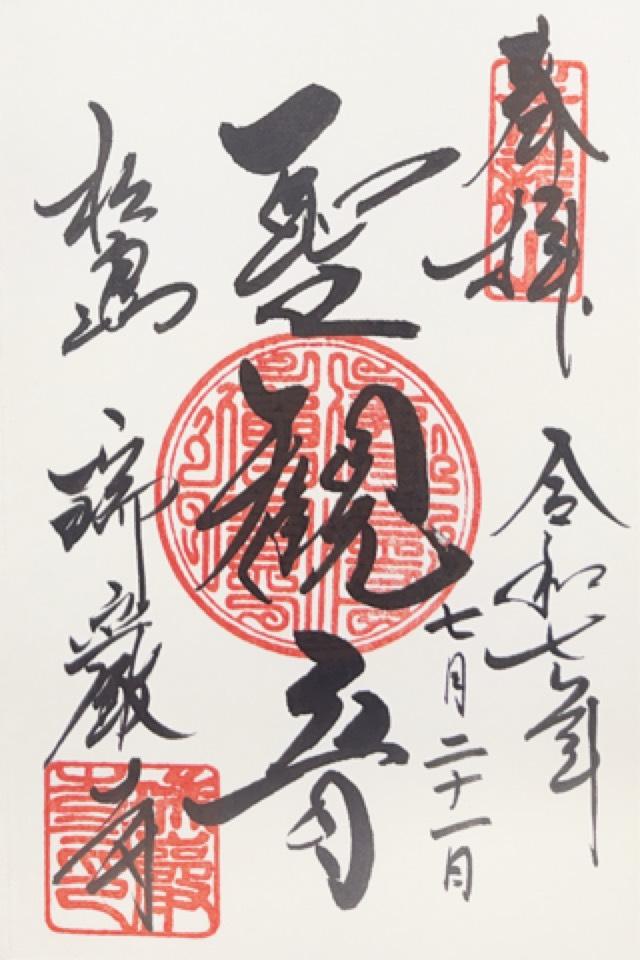 奉拝
令和七年
七月二十一日
聖観音
松島
瑞巌寺